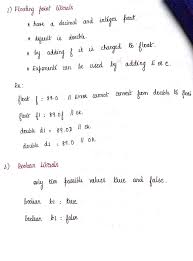 1) Floating point literals
• have a decimal and integer part
• default is double.
• by adding f it is changed to float.
• Exponents can be used by adding E or e.
Ex:
float f = 89.0 // Error cannot convert from double to float
float f1 = 89.0f // ok.
double d1 = 89.0D // ok.
double d2 = 89.0 // ok.
2) Boolean literals
only two possible values true and false.
boolean b1 = true
boolean b2 = false